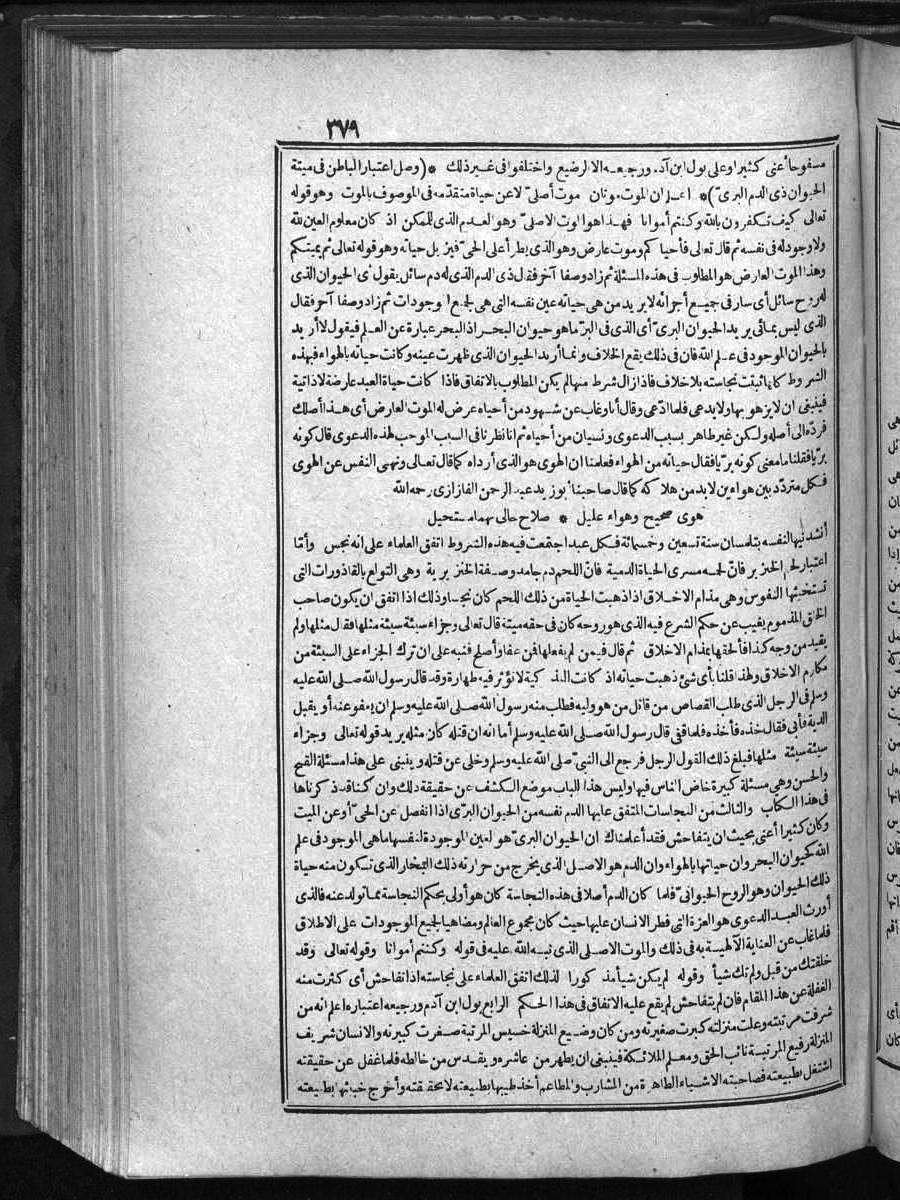 ٣٧٩
مسفوحا أعنى كثيرا وعلى بول ابن آدم ورجيعه الا الرضيع واختلفوا فى غير ذلك * (وصل اعتبار الباطن فى ميتة
الحيوان ذى الدم البرىّ) * اعلم ان الموت موتان موت أصلىّ لا عن حياة متقدّمة فى الموصوف بالموت وهو قوله
تعالى كيف تكفرون بالله وكنتم أمواتا فهذا هو الموت الاصلىّ وهو العدم الذى للممكن اذ كان معلوم العين لله
ولا وجود له فى نفسه ثم قال تعالى فأحياكم وموت عارض وهو الذى يطرأ على الحىّ فيزيل حياته وهو قوله تعالى ثم يميتكم
وهذا الموت العارض هو المطلوب فى هذه المسئلة ثم زاد وصفا آخر فقال ذى الدم الذى له دم سائل يقول أى الحيوان الذى
له روح سائل أى سار فى جميع أجزائه لا يريد من هى حياته عين نفسه التى هى لجميع الموجودات ثم زاد وصفا آخر فقال
الذى ليس بمائى يريد الحيوان البرىّ أى الذى فى البرّ ما هو حيوان البحر اذ البحر عبارة عن العلم فيقول لا أريد
بالحيوان الموجود فى علم الله فان فى ذلك يقع الخلاف وانما أريد الحيوان الذى ظهرت عينه وكانت حياته بالهواء فبهذه
الشروط كلها ثبتت نجاسته بلا خلاف فاذا زال شرط منها لم يكن المطلوب بالاتفاق فاذا كانت حياة العبد عارضة لا ذاتية
فينبغى ان لا يزهو بها ولا يدعى فلما ادّعى وقال أنا وغاب عن شهود من أحياه عرض له الموت العارض أى هذا أصلك
فردّه الى أصله ولكن غير طاهر بسبب الدعوى ونسيان من أحياه ثم انا نظرنا فى السبب الموجب لهذه الدعوى قال كونه
بريّا فقلنا ما معنى كونه بريّا فقال حياته من الهواء فعلمنا ان الهوى هو الذى أرداه كما قال تعالى ونهى النفس عن الهوى
فكل متردّد بين هواءين لا بد من هلاكه كما قال صاحبنا أبو زيد عبد الرحمن الفازازى رحمه الله
هوى صحيح وهواء عليل * صلاح حالى بهما مستحيل
أنشدنيها لنفسه بتلمسان سنة تسعين وخمسمائة فكل عبد اجتمعت فيه هذه الشروط اتفق العلماء على انه نجس وأمّا
اعتبار لحم الخنزير فانّ لحمه مسرى الحياة الدمية فانّ اللحم دم جامد وصفة الخنزيرية وهى التولع بالقاذورات التى
تستخبثها النفوس وهى مذام الاخلاق اذا ذهبت الحياة من ذلك اللحم كان نجسا وذلك اذا اتفق ان يكون صاحب
الخلق المذموم يغيب عن حكم الشرع فيه الذى هو روحه كان فى حقه ميتة قال تعالى وجزاء سيئة سيئة مثلها فقال مثلها ولم
يقيد من وجه كذا فألحقها بمذام الاخلاق ثم قال فيمن لم يفعلها فمن عفا وأصلح فنبه على ان ترك الجزاء على السيئة من
مكارم الاخلاق ولهذا قلنا بأى شئ ذهبت حياته اذ كانت التذكية لا تؤثر فيه طهارة وقد قال رسول الله صلى الله عليه
وسلم فى الرجل الذى طلب القصاص من قاتل من هو وليه فطلب منه رسول الله صلى الله عليه وسلم ان يعفو عنه أو يقبل
الدية فأبى فقال خذه فأخذه فلما قفى قال رسول الله صلى الله عليه وسلم أما انه ان قتله كان مثله يريد قوله تعالى وجزاء
سيئة سيئة مثلها فبلغ ذلك القول الرجل فرجع الى النبىّ صلى الله عليه وسلم وخلى عن قتله وينبنى على هذا مسئلة القبح
والحسن وهى مسئلة كبيرة خاض الناس فيها وليس هذا الباب موضع الكشف عن حقيقة ذلك وان كنا قد ذكرناها
فى هذا الكتاب والثالث من النجاسات المتفق عليها الدم نفسه من الحيوان البرّى اذا انفصل عن الحىّ أو عن الميت
وكان كثيرا أعنى بحيث ان يتفاحش فقد أعلمناك ان الحيوان البرىّ هو العين الموجودة لنفسها ما هى الموجود فى علم
الله كحيوان البحر وان حياتها بالهواء وان الدم هو الاصل الذى يخرج من حرارته ذلك البخار الذى تكون منه حياة
ذلك الحيوان وهو الروح الحيوانىّ فلما كان الدم أصلا فى هذه النجاسة كان هو أولى بحكم النجاسة مما تولد عنه فالذى
أورث العبد الدعوى هو العزة التى فطر الانسان عليها حيث كان مجموع العالم ومضاهيا لجميع الموجودات على الاطلاق
فلما غاب عن العناية الالهية به فى ذلك والموت الاصلى الذى نبه الله عليه فى قوله وكنتم أمواتا وقوله تعالى وقد
خلقتك من قبل ولم تك شيأ وقوله لم يكن شيأ مذكورا لذلك اتفق العلماء على نجاسته اذا تفاحش أى كثرت منه
الغفلة عن هذا المقام فان لم يتفاحش لم يقع عليه الاتفاق فى هذا الحكم الرابع بول ابن آدم ورجيعه اعتباره اعلم انه من
شرفت مرتبته وعلت منزلته كبرت صغيرته ومن كان وضيع المنزلة خسيس المرتبة صغرت كبيرته والانسان شريف
المنزلة رفيع المرتبة نائب الحق ومعلم الملائكة فينبغى ان يطهر من عاشره ويقدس من خالطه فلما غفل عن حقيقته
اشتغل بطبيعته فصاحبته الاشياء الطاهرة من المشارب والمطاعم أخذ طيبها بطبيعته لا بحقيقته وأخرج خبيثها بطبيعته